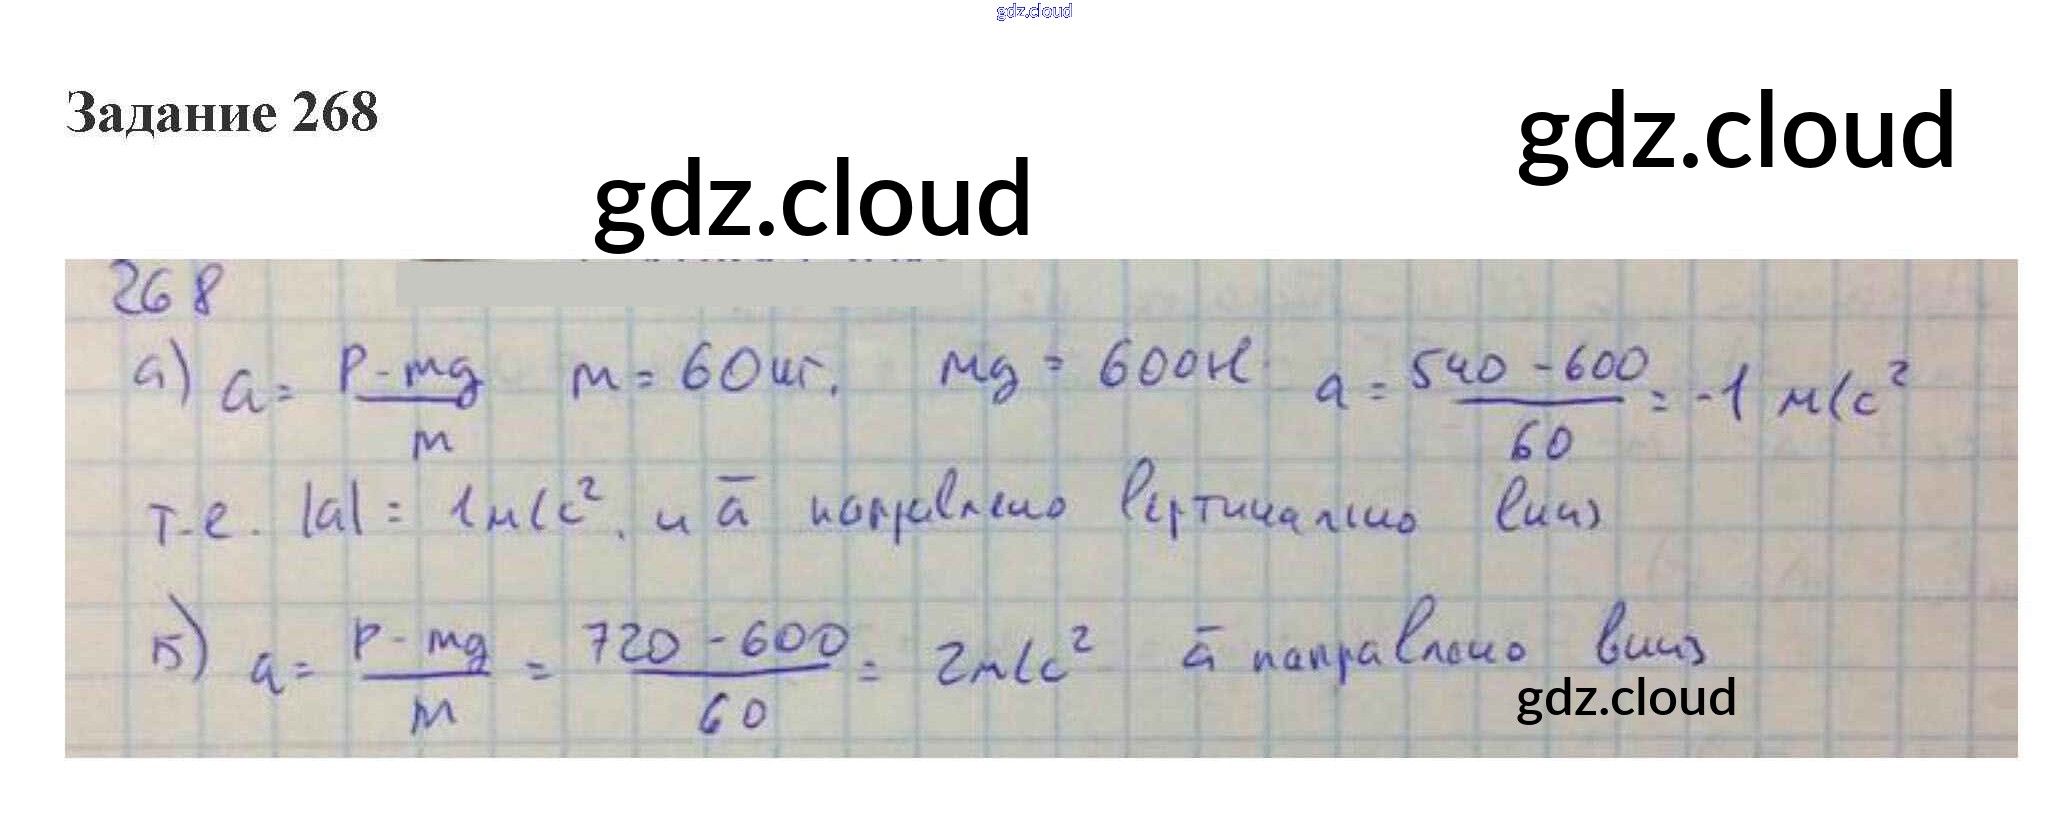 gdz.cloud
Задание 268
gdz.cloud
gdz.cloud
268
а) a = (P - mg)/m   m = 60 кг.   mg = 600 Н   a = (540 - 600)/60 = -1 м/с²
т.е. |a| = 1 м/с². и a̅ направлено вертикально вниз
б) a = (P - mg)/m = (720 - 600)/60 = 2 м/с²   a̅ направлено вниз
gdz.cloud